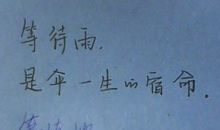 等待雨.
是伞一生的宿命.